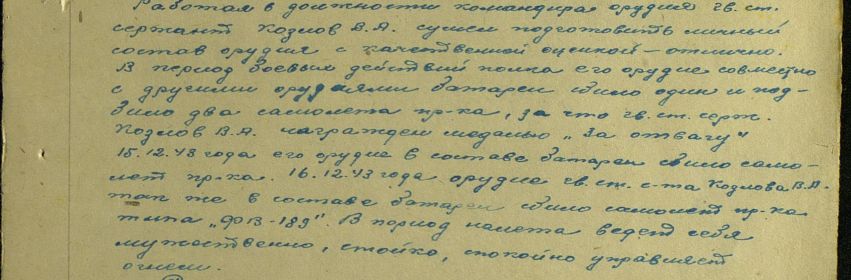 Работая в должности командира орудия гв. ст.
сержант Козлов В.А. сумел подготовить личный
состав орудия с качественной оценкой – отлично.
В период боевых действий полка его орудие совместно
с другими орудиями батареи сбило один и под-
било два самолета пр-ка, за что гв. ст. серж.
Козлов В.А. награжден медалью „За отвагу"
15.12.43 года его орудие в составе батареи сбило само-
лет пр-ка. 16.12.43 года орудие гв. ст. с-та Козлова В.А.
так же в составе батареи сбило самолет пр-ка
типа „ФВ-189". В период налета ведет себя
мужественно, стойко, спокойно управляет
огнем.